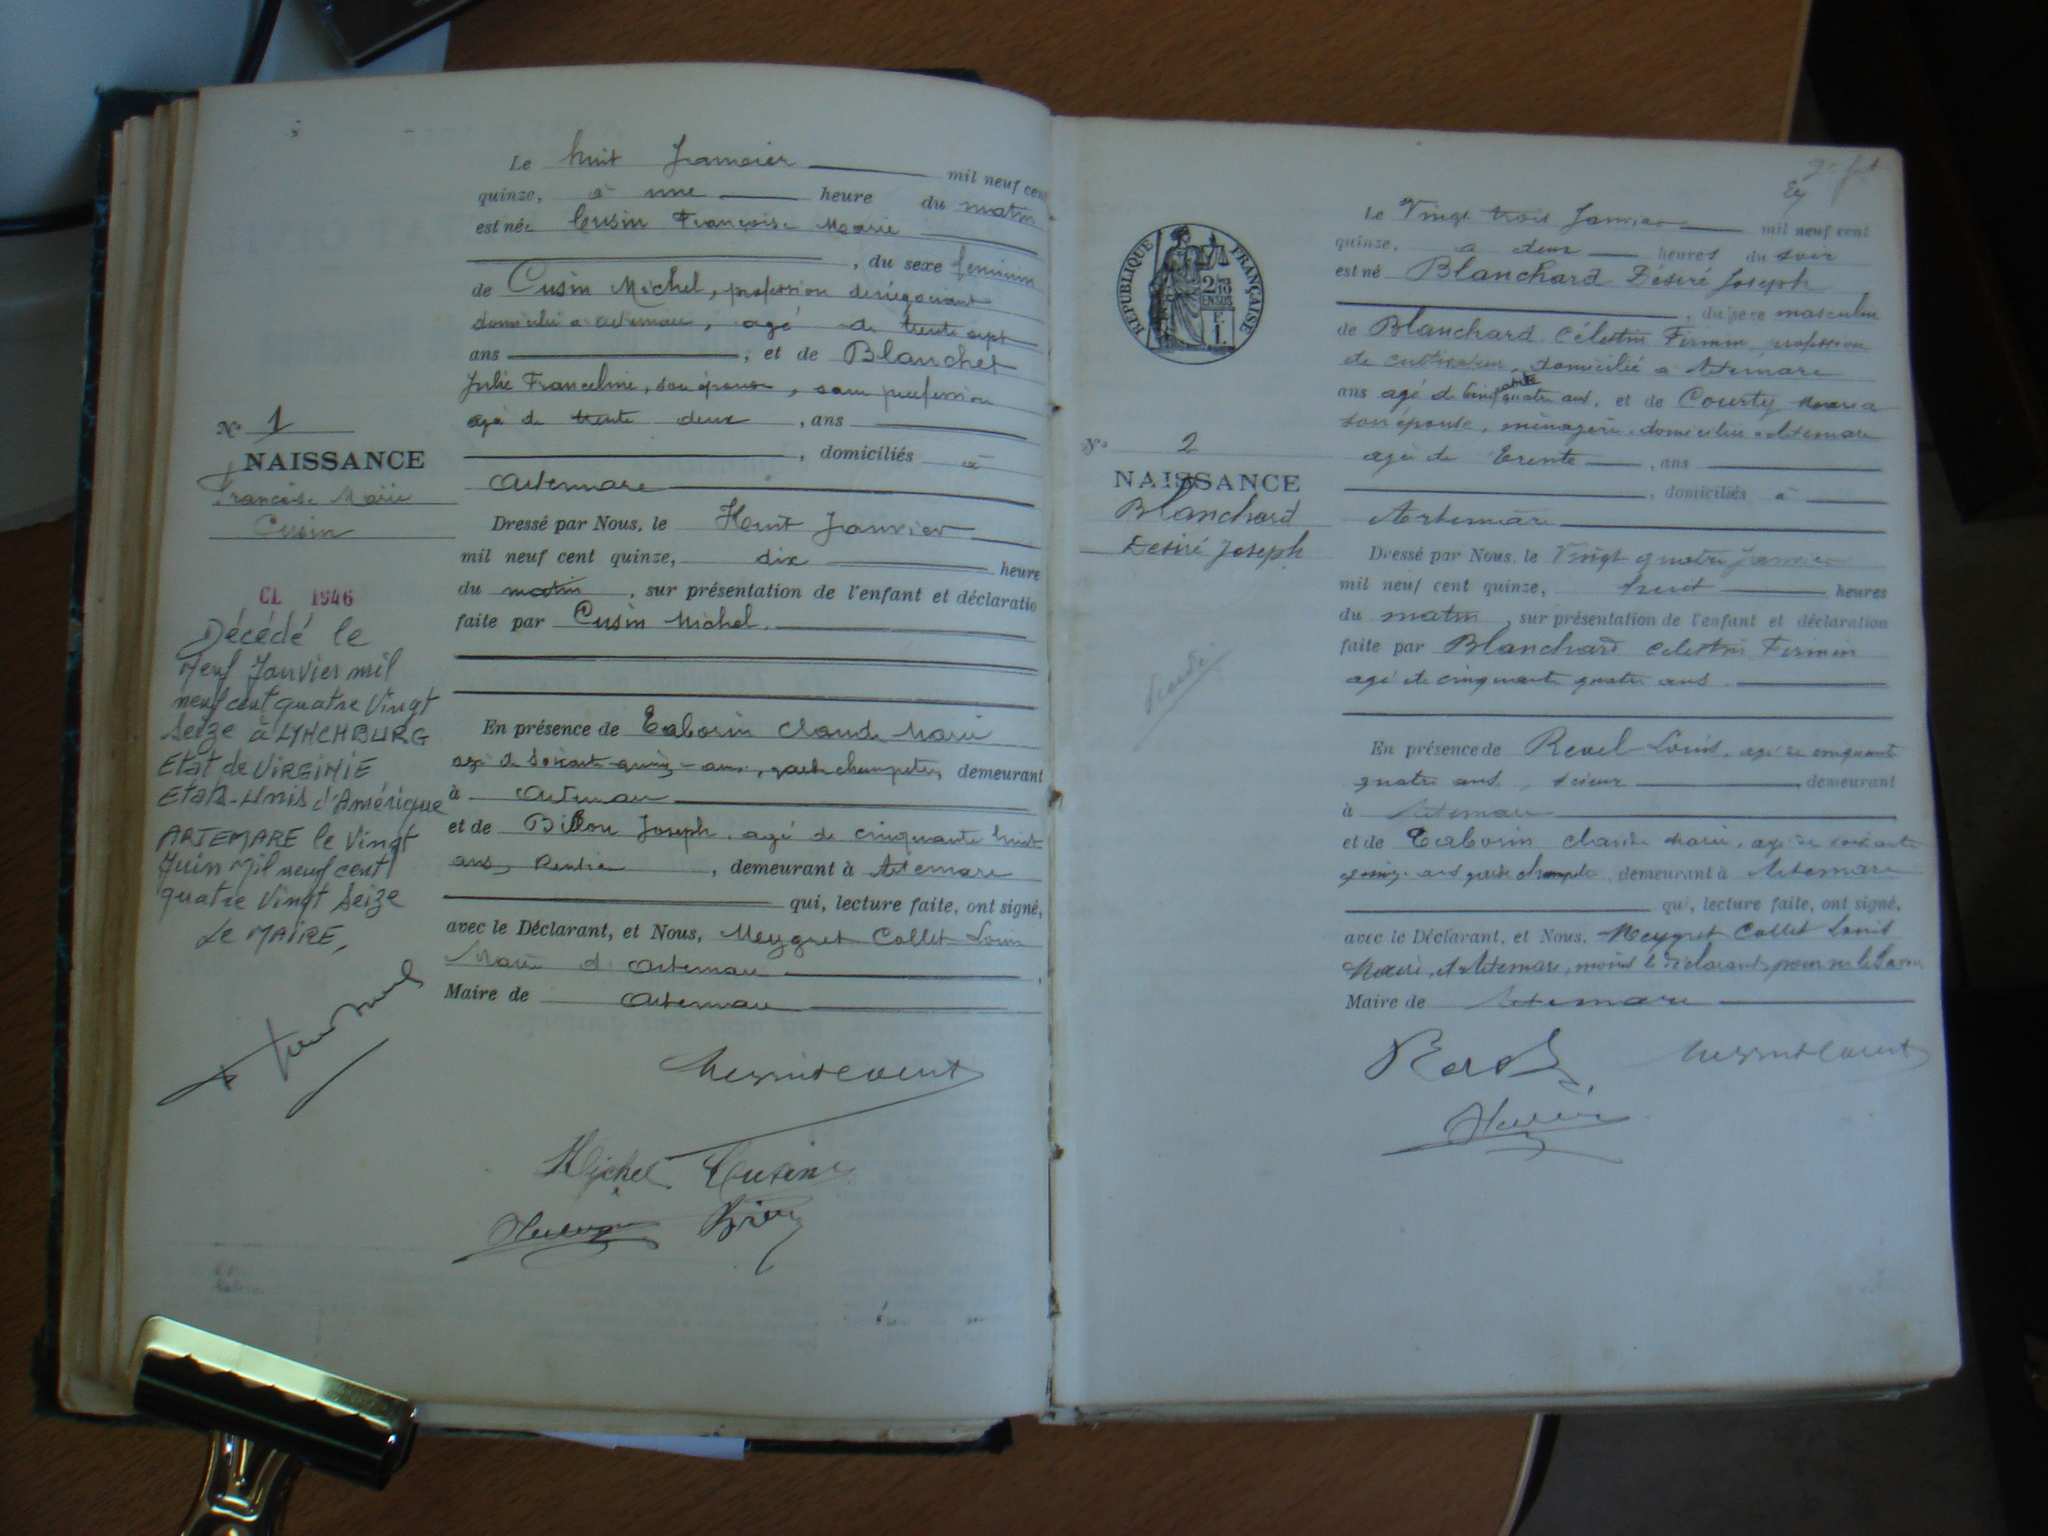 Le huit Janvier mil neuf cent
quinze, à une heure du matin
est née Cusin Françoise Marie
, du sexe feminin
de Cusin Michel, profession de négociant
domicilié a Artemare, agé de trente sept
ans , et de Blanchet
Julie Franceline, son épouse, sans profession
agé de trente deux , ans
, domiciliés à
Artemare
N° 1
NAISSANCE
Françoise Marie
Cusin
Dressé par Nous, le Huit Janvier
mil neuf cent quinze, dix heure
du matin , sur présentation de l'enfant et déclaratio
faite par Cusin Michel.
CL 1946
Décédé le
Neuf Janvier mil
neuf cent quatre Vingt
Seize à LYNCHBURG
Etat de VIRGINIE
Etats-Unis d'Amérique
ARTEMARE le Vingt
Juin Mil neuf cent
quatre Vingt Seize
Le MAIRE,
En présence de Taborin Claude Marie
agé de soixante quinze ans, garde champetre, demeurant
à Artemare
et de Billon Joseph, agé de cinquante huit
ans, Rentier , demeurant à Artemare
qui, lecture faite, ont signé,
avec le Déclarant, et Nous, Meygret Collet Louis
Maire d'Artemare
Maire de Artemare
Michel Cusin
RÉPUBLIQUE FRANÇAISE
2/10 EN SUS
Ey
Le Vingt trois Janvier mil neuf cent
quinze, a deux heures du soir
est né Blanchard Désiré Joseph
, du sexe masculin
de Blanchard Célestin Firmin profession
de cultivateur, domicilié a Artemare
ans agé de cinquante quatre ans, et de Courty Maria
son épouse, ménagère domiciliée Artemare
agée de Trente , ans
, domiciliés à
Artemare
N° 2
NAISSANCE
Blanchard
Désiré Joseph
Dressé par Nous, le Vingt quatre Janvier
mil neuf cent quinze, huit heures
du matin , sur présentation de l'enfant et déclaration
faite par Blanchard Celestin Firmin
agé de cinquante quatre ans
En présence de Revel Louis, agé de cinquante
quatre ans, scieur , demeurant
à Artemare
et de Taborin Claude Marie, agé de soixante
quinze ans garde champetre, demeurant à Artemare
qui, lecture faite, ont signé,
avec le Déclarant, et Nous, Meygret Collet Louis
Maire, d'Artemare, moins le déclarant pour ne le savoir
Maire de Artemare